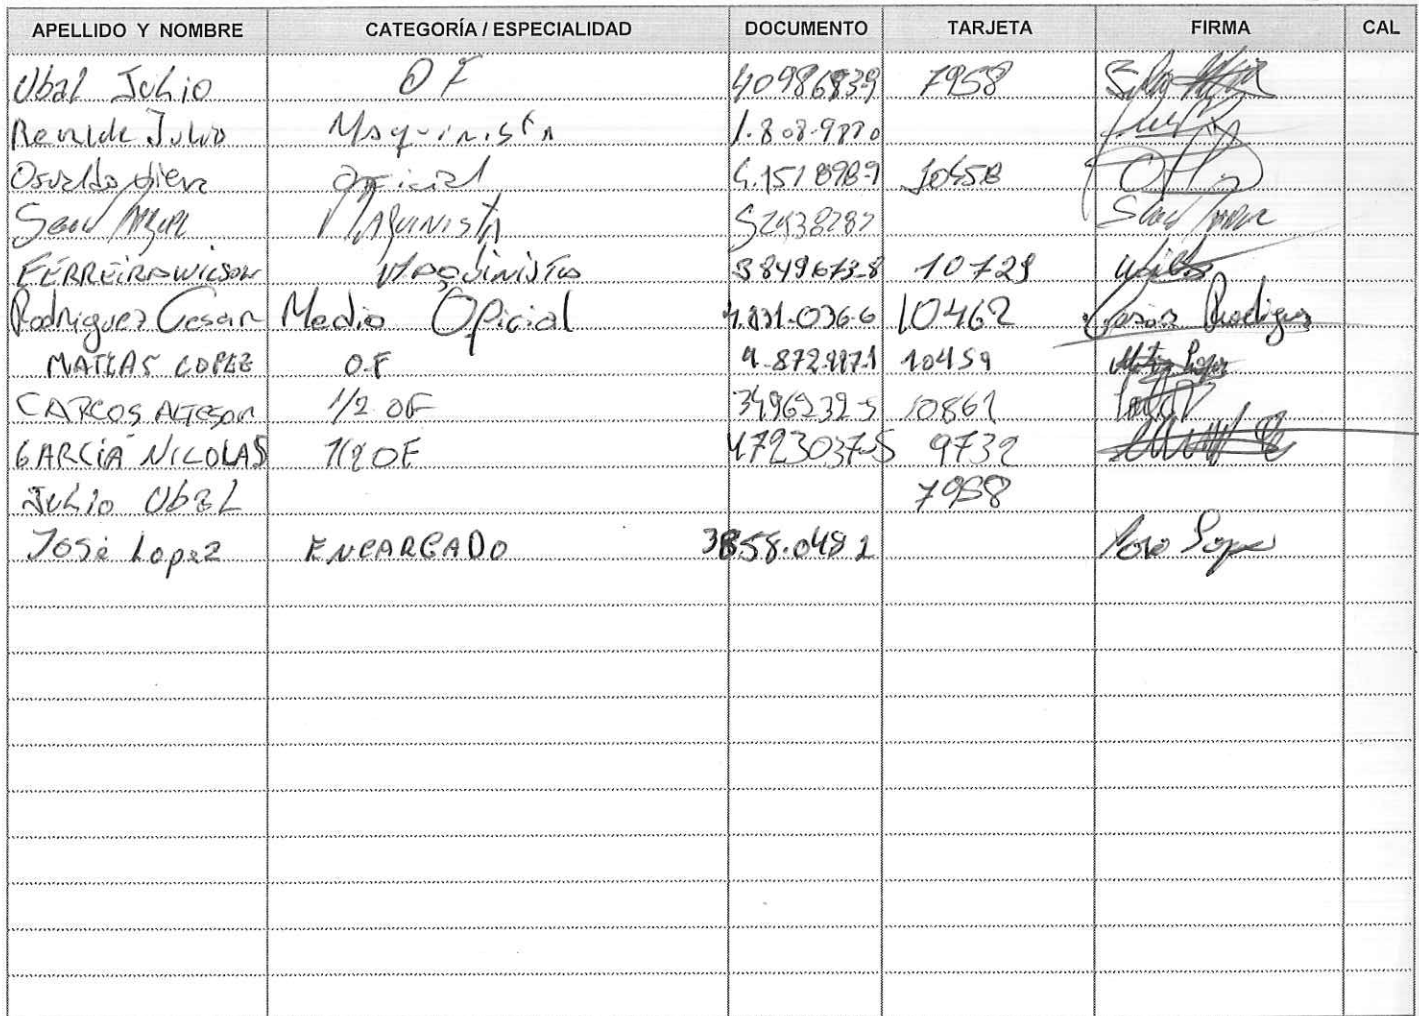 APELLIDO Y NOMBRE CATEGORÍA / ESPECIALIDAD DOCUMENTO TARJETA FIRMA CAL
Ubal Julio OF 40986839 7958
Julio Maquinista 1.808.9870
Osvaldo oficial 10458
Maquinista 52938282
FERREIRA WILSON Maquinista 3849673-8 10729
Rodriguez Cesar Medio Oficial 4.831.036-6 10462 Rodriguez
MATIAS LOPEZ O.F 10459
CARLOS 1/2 OF 3496232-5 10861
GARCIA NICOLAS 1/2 OF 4723037-5 9732
Julio Ubal 7958
José Lopez ENCARGADO 3858.0481 Jose Lopez